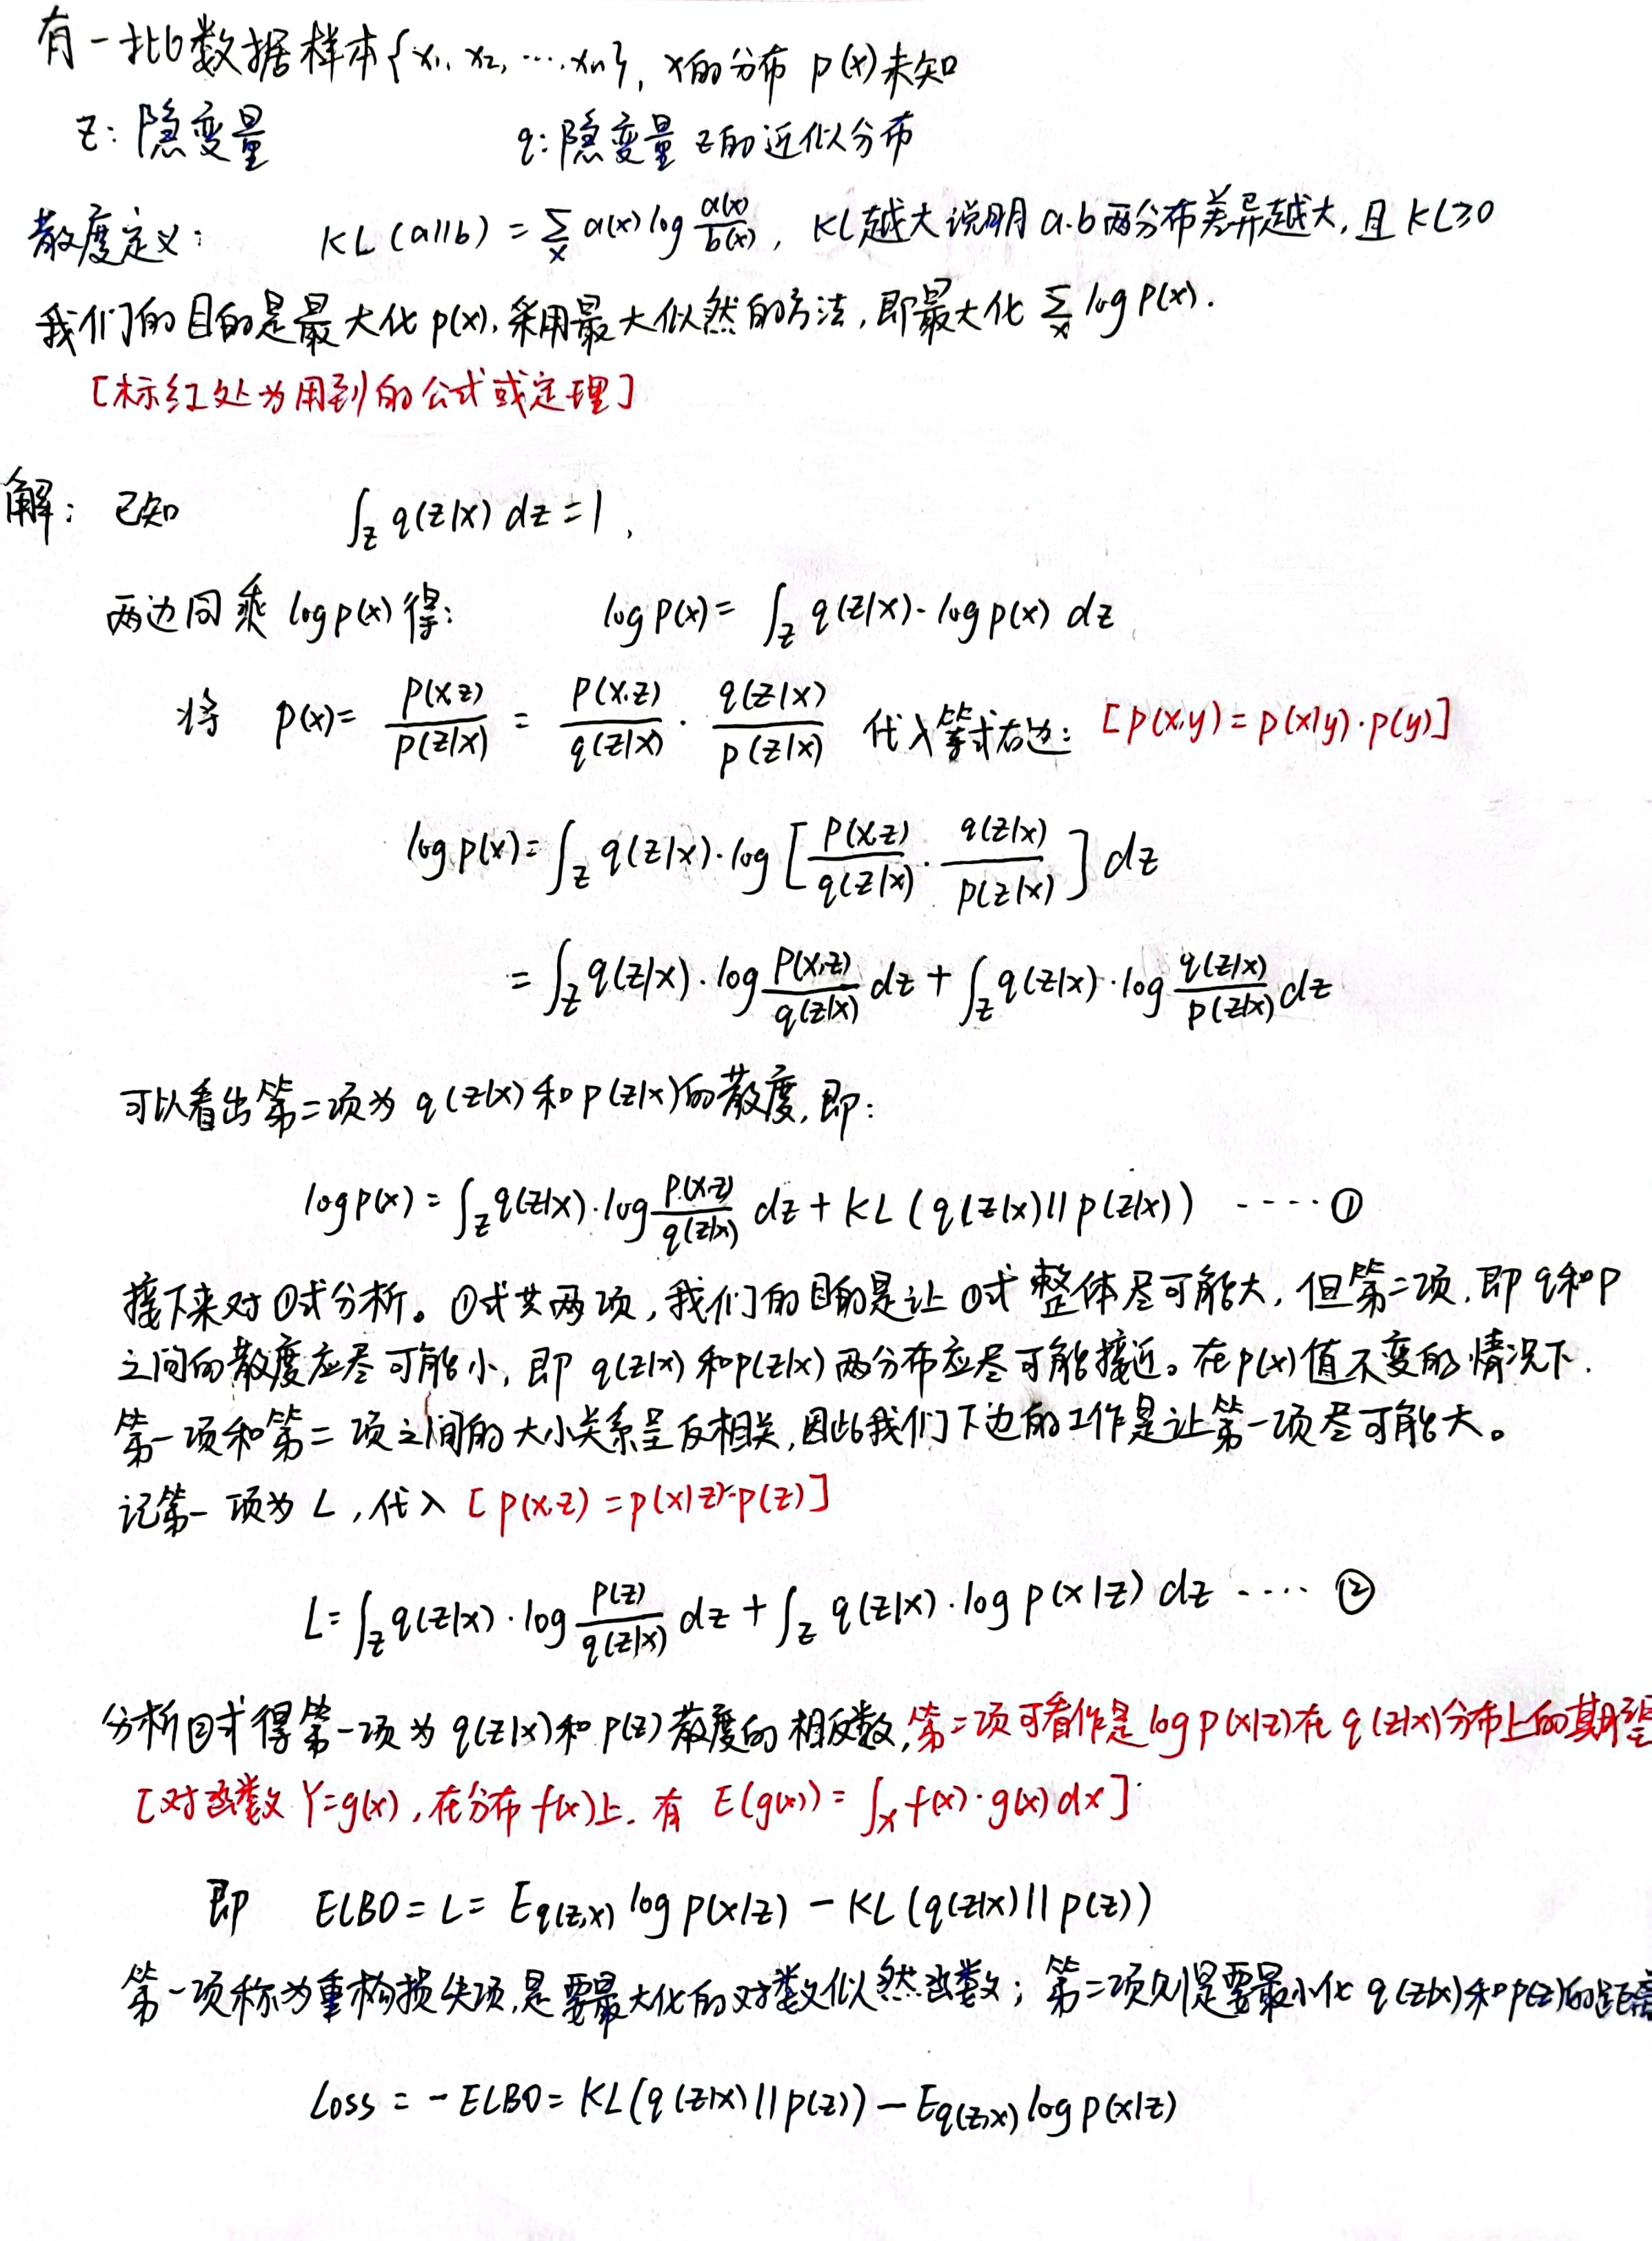 有一批数据样本{x₁, x₂, ⋯, xₙ}, x的分布 p(x)未知
z: 隐变量 q: 隐变量 z的近似分布
散度定义: KL(a||b) = ∑ₓ a(x) log a(x)/b(x), KL越大说明a.b两分布差异越大, 且KL≥0
我们的目的是最大化p(x), 采用最大似然的方法, 即最大化 ∑ₓ log p(x).
[标红处为用到的公式或定理]
解: 已知 ∫_z q(z|x) dz = 1,
两边同乘 log p(x) 得: log p(x) = ∫_z q(z|x)·log p(x) dz
将 p(x) = p(x,z)/p(z|x) = p(x,z)/q(z|x) · q(z|x)/p(z|x) 代入等式右边: [p(x,y) = p(x|y)·p(y)]
log p(x) = ∫_z q(z|x)·log [p(x,z)/q(z|x) · q(z|x)/p(z|x)] dz
= ∫_z q(z|x)·log p(x,z)/q(z|x) dz + ∫_z q(z|x)·log q(z|x)/p(z|x) dz
可以看出第二项为 q(z|x)和p(z|x)的散度, 即:
log p(x) = ∫_z q(z|x)·log p(x,z)/q(z|x) dz + KL(q(z|x)||p(z|x)) ----- ①
接下来对①式分析。①式共两项, 我们的目的是让①式整体尽可能大, 但第二项, 即q和p
之间的散度应尽可能小, 即 q(z|x)和p(z|x)两分布应尽可能接近。在p(x)值不变的情况下,
第一项和第二项之间的大小关系呈反相关, 因此我们下边的工作是让第一项尽可能大。
记第一项为L, 代入 [p(x,z) = p(x|z)·p(z)]
L = ∫_z q(z|x)·log p(z)/q(z|x) dz + ∫_z q(z|x)·log p(x|z) dz ---- ②
分析②式得第一项为q(z|x)和p(z)散度的相反数, 第二项可看作是log p(x|z)在q(z|x)分布上的期望
[对函数Y=g(x), 在分布f(x)上, 有 E(g(x)) = ∫ₓ f(x)·g(x)dx]
即 ELBO = L = E_q(z,x) log p(x|z) - KL(q(z|x)||p(z))
第一项称为重构损失项, 是要最大化的对数似然函数; 第二项则是要最小化q(z|x)和p(z)的距离
Loss = -ELBO = KL(q(z|x)||p(z)) - E_q(z,x) log p(x|z)